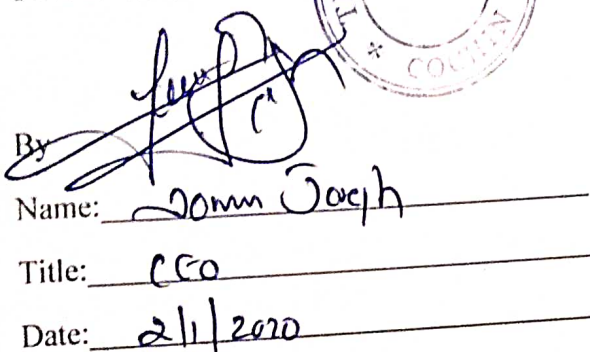 COCHIN
By
Name: Joseph
Title: CEO
Date: 2/1/2020